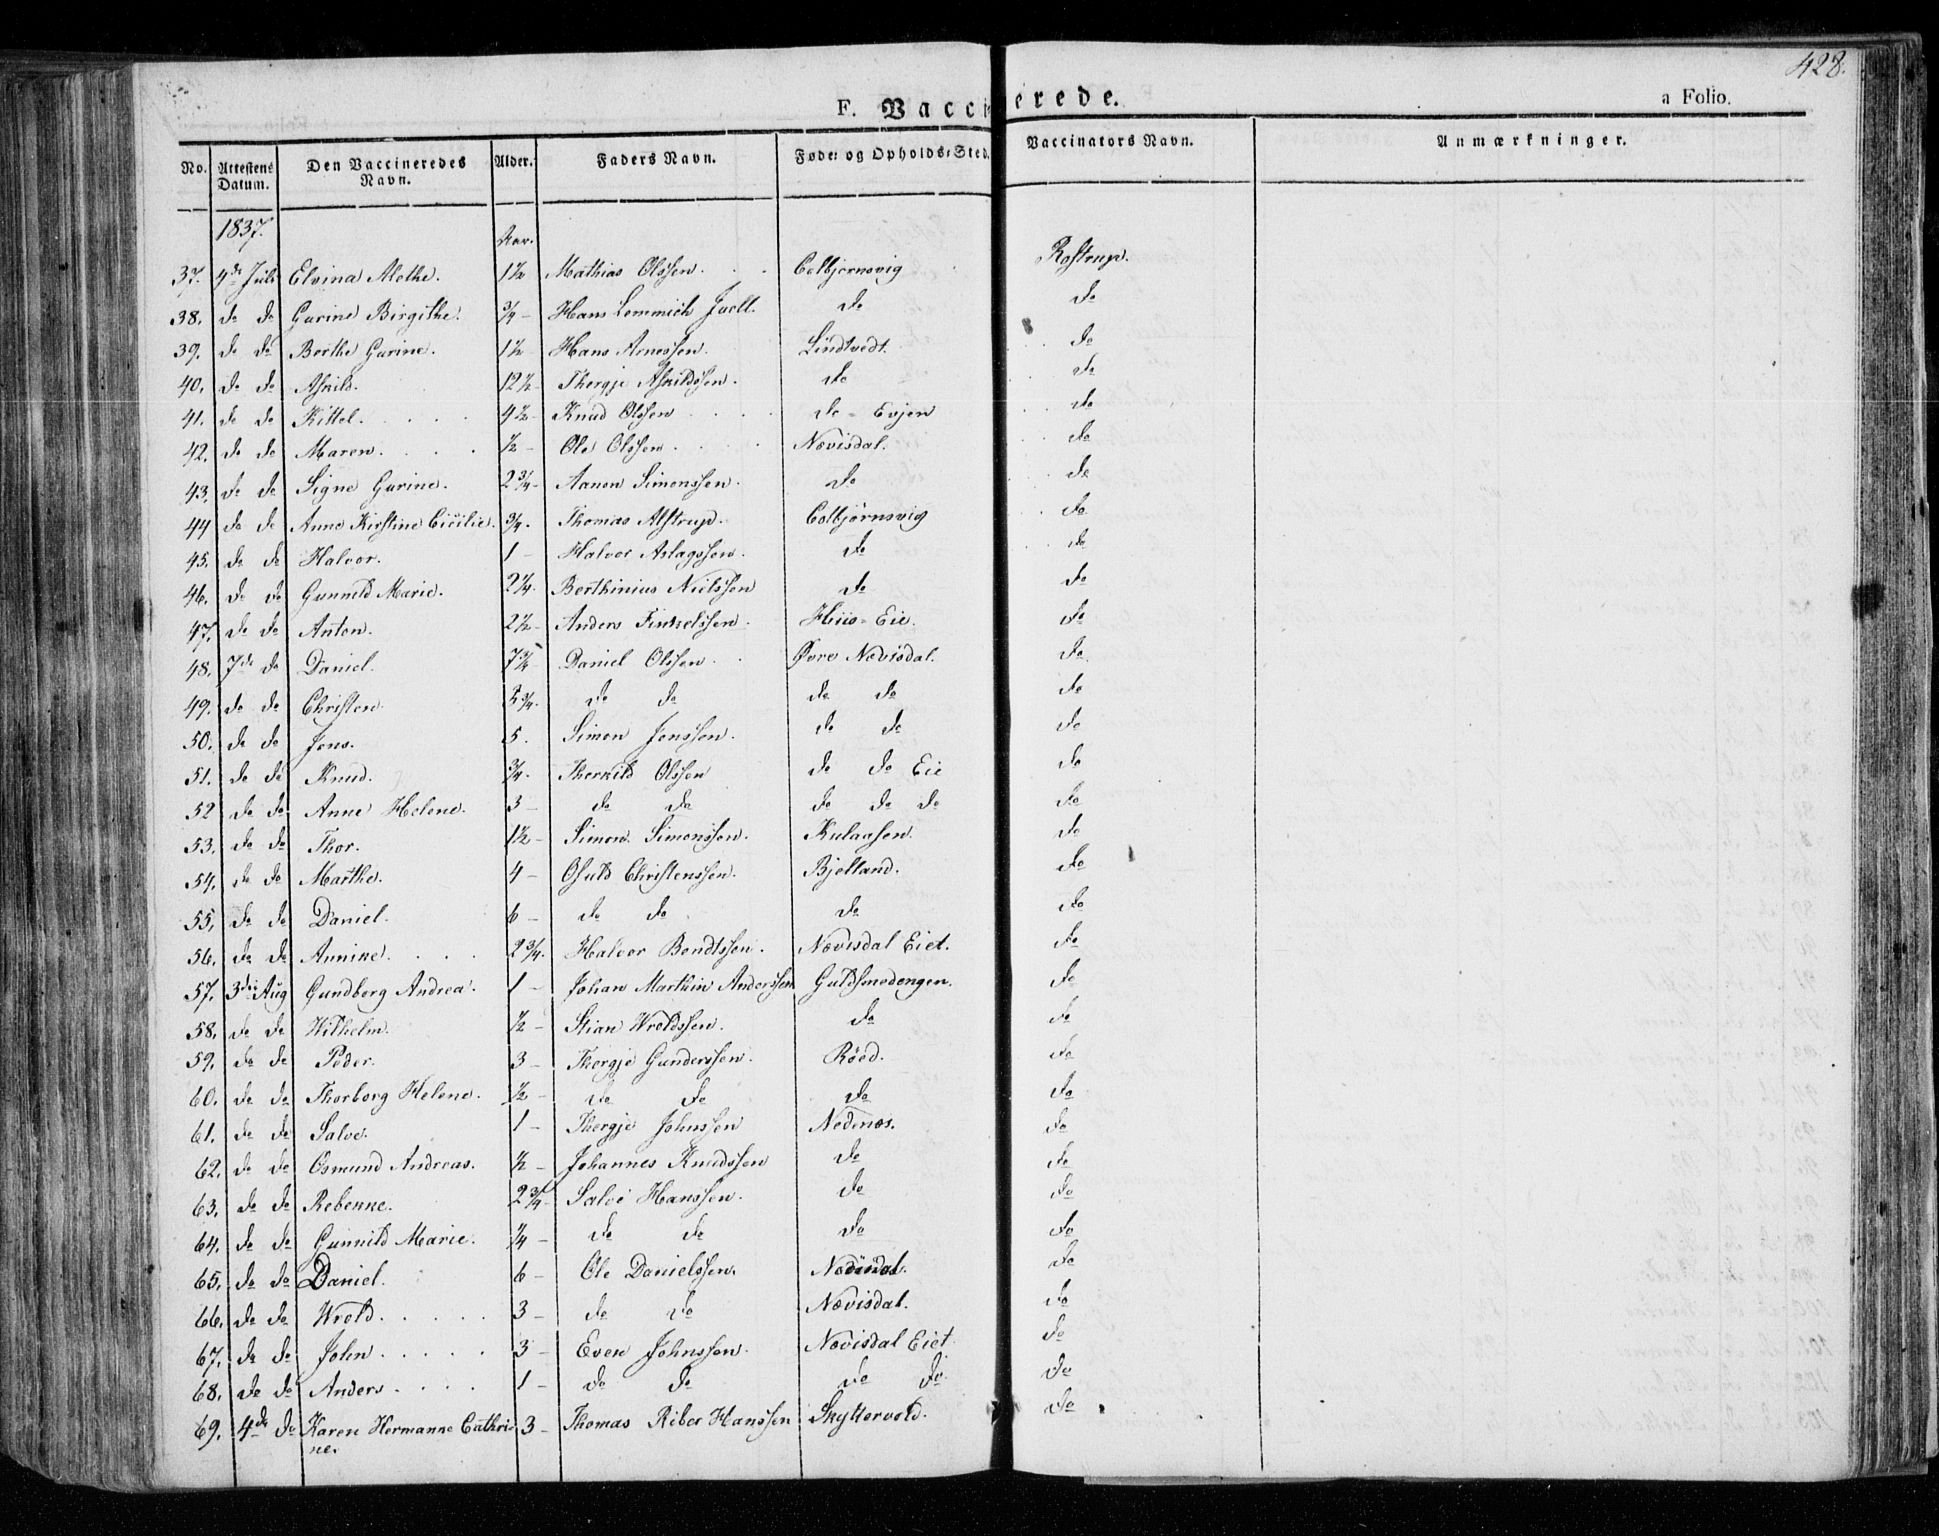 428.
F. Vaccinerede. a Folio.
No. Attestens Datum. Den Vaccineredes Navn. Alder. Faders Navn. Føde- og Opholds-Sted. Vaccinators Navn. Anmærkninger.
1837. Aar.
37. 4de Juli Elvina Alethe. 1½ Mathias Olssen. Colbjørnsvig Rostrup.
38. do do Gurine Birgithe. ¾ - Hans Lemmich Juell. do do
39. do do Berthe Gurine. 1½ Hans Arnessen. Lindtvedt. do
40. do do Askild. 12½ - Thergje Askildssen. do do
41. do do Kittel. 4½ - Knud Olssen do - Evjen do
42. do do Maren. ½ - Ole Olssen. Nævisdal. do
43. do do Signe Gurine. 2¾ - Aanon Simonssen. do do
44 do do Anne Kirstine Cicilie. ¾. Thomas Alstrup. Colbjørnsvig do
45. do do Halvor. 1 - Halvor Aslagssen. do do
46. do do Gunnild Marie. 2¼. Berthinius Nielssen do do
47. do do Anton. 2½ - Anders Finkelssen. Hiis - Eie. do
48. 7de do Daniel. 7¾ - Daniel Olssen. Øvre Nævisdal. do
49. do do Christen. 2¾. do do do do do
50. do do Jens. 5. Simon Jenssen. do do do
51. do do Knud. ¾. Therkild Olssen do do Eie do
52 do do Anne Helene. 3 - do do do do do do
53. do do Thor. 1½ - Simon Simonssen. Kulaasen. do
54. do do Marthe. 4 - Osuld Christenssen. Bjelland. do
55. do do Daniel. 6 - do do do do
56. do do Annine. 2¾. Halvor Bendtssen. Nævisdal Eiet. do
57. 3die Aug Gundborg Andrea. 1 - Johan Marthin Anderssen Guldsmedengen. do
58. do do Wilhelm. ½ - Stian Wroldssen. do do
59. do do Peder. 3 - Thergje Gunderssen. Røed. do
60. do do Thorborg Helene. ½ - do do do do
61. do do Salve. 1 - Thergje Johnssen Nedenæs. do
62. do do Osmund Andreas. ½ - Johannes Knudssen do do
63. do do Rebekke. 2¾ - Salve Hanssen. do do
64. do do Gunnild Marie. ¼ - do do do do
65. do do Daniel. 6 - Ole Danielssen. Nævisdal. do
66. do do Wrold. 3 - do do Nævisdal. do
67. do do John 3 - Even Johnssen. Nævisdal Eiet. do
68. do do Anders. 1 - do do do do do
69. 4de do Karen Hermanne Cathri- 3 - Thomas Riber Hanssen Skyttervold. do
ne.